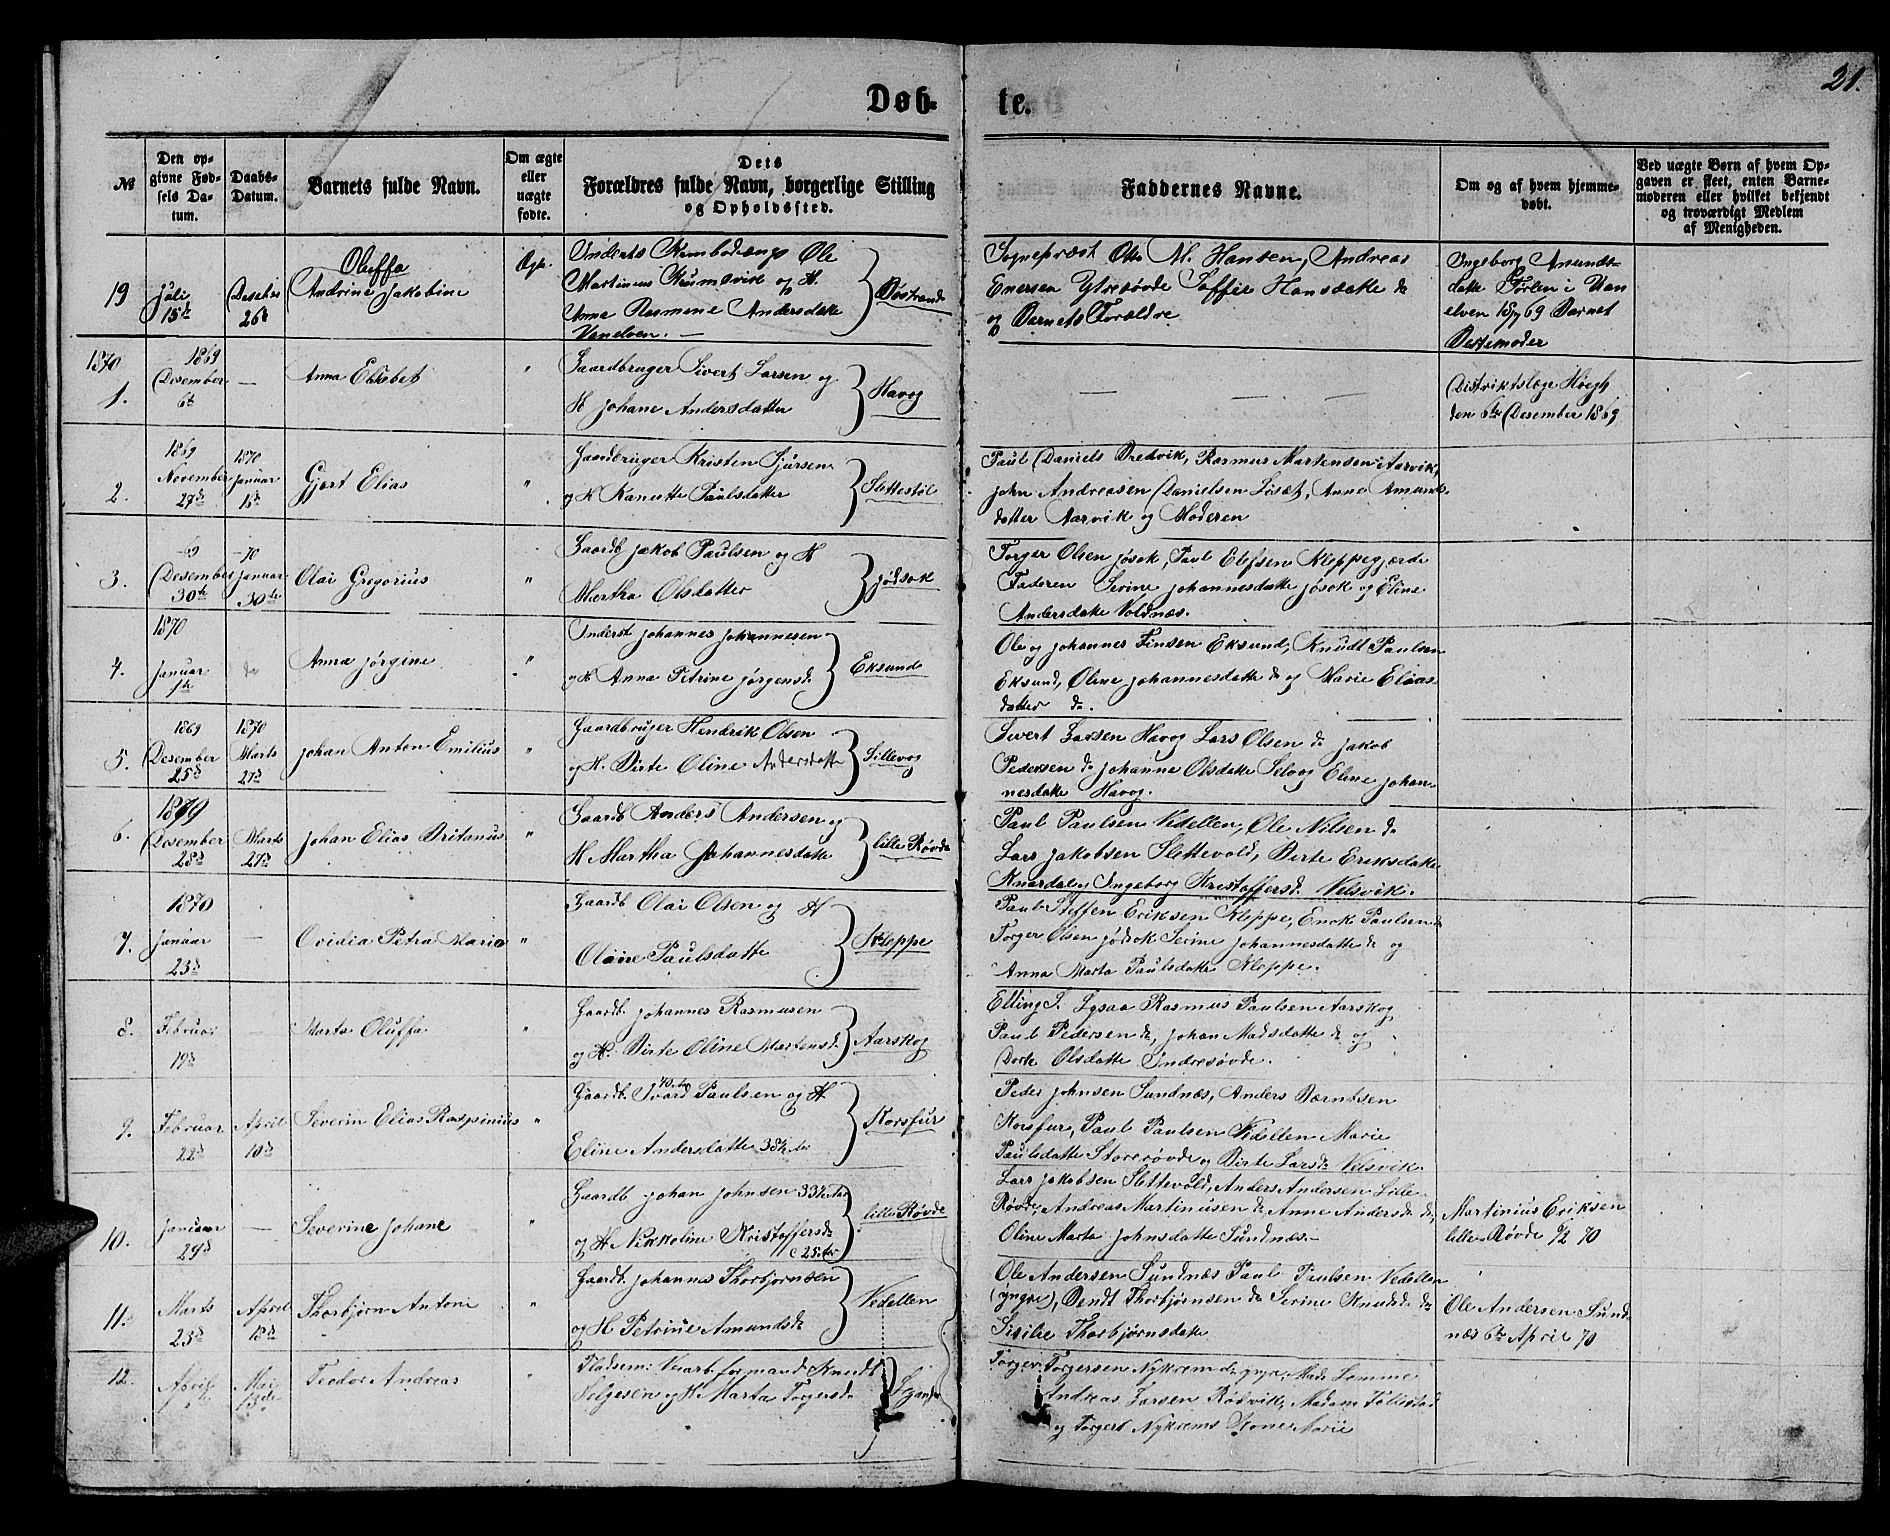 21.
Døb- te.
№
Den op-
givne Fød-
sels Da-
tum.
Daabs-
Datum.
Barnets fulde Navn.
Om ægte
eller
uægte
fødte.
Dets
Forældres fulde Navn, borgerlige Stilling
og Opholdssted.
Faddernes Navne.
Om og af hvem hjemme-
døbt.
Ved uægte Børn af hvem Op-
gaven er skeet, enten Barne-
moderen eller hvilket bekjendt
og troværdigt Medlem
af Menigheden.
19
Juli
15de
Desebr
26de
Oluffa
Andrine Jakobine
Ægte
Ole
Martinius Krumsvik og H.
Anna Rasmine Andersdatte
Vanelven. —
Sogneprest Otto M. Hansen, Andreas
Enersen Ytrerøvde Saffie Hansdatte do
og Barnets Forældre
Ingeborg Amunds-
datte i Van
elven 15/7 69 Barnet
Bestemoder
1870
1.
1869
Desember
6te
—
Anna Elisabet
"
Gaardbruger Sivert Larsen og
H Johane Andersdatter
Havog
— — —
Distriktslæge Høegh
den 6te Desember 1869
2.
1869
November
27de
1870
Januar
16de
Gjert Elias
"
Gaardbruger Kristen Sjursen
og H Kanutte Paulsdatter
Slettestøl
Paul Daniels Bredvik, Rasmus Martensen Aarvik,
John Andreasen Danielsen Liset, Anne Amunds-
datter Aarvik og Moderen
3.
-69
Desember
30te
-70
Januar
30te
Olai Gregorius
"
Gaardb Jakob Paulsen og H
Martha Olsdatter
Jødsok
Torger Olsen Jøsok, Paul Elefsen Kleppegjærde
Faderen Serine Johannesdatte Jøsok og Eline
Andersdatte Voldnæs.
4.
1870
Januar
1te
do
Anna Jørgine
"
Inderst Johannes Johannesen
og H Anna Petrine Jørgensd.
Eksund
Ole og Johannes Finsen Eksund, Knudt Paulsen
Eksund, Oline Johannesdatte do og Marie Elias-
datter do.
5.
1869
Desember
25de
1870
Marts
27de
Johan Anton Emilius
"
Gaardbruger Hendrik Olsen
og H. Birte Oline Andersdatte
Sillevog
Sivert Larsen Havog Lars Olsen do Jakob
Pedersen do Johanna Olsdatte Selvog Eline Johan-
nesdatte Havog.
6.
1869
Desember
28de
Marts
27de
Johan Elias Britanus
"
Gaardb Anders Andersen og
H Martha Johannesdatte
lille Røvde
Paul Paulsen Vedellen, Ole Nilsen do
Lars Jakobsen Slettevold, Birte Eriksdatte
Knardal og Ingeborg Kristoffersd. Velsvik.
7.
1870
Januar
23de
—
Ovidia Petra Maria
"
Gaardb Olai Olsen og H
Olaine Paulsdatte
Kleppe
Paul Steffen Eriksen Kleppe, Enok Paulsen do
Torger Olsen Jødsok Serine Johannesdatte do og
Anna Marta Paulsdatte Kleppe.
8.
Februar
19de
—
Marte Oluffa
"
Gaardb. Johannes Rasmusen
og H. Birte Oline Martensd.
Aarskog
Elling S. Lysaa Rasmus Paulsen Aarskog
Paul Pedersen do, Johan Madsdatte do og
Dorte Olsdatte Indrerøvde.
9.
Februar
22de
April
10de
Severin Elias Raspinius
"
Gaardb. Ivard Paulsen og H
Eline Andersdatte 38½ Aar
Korsfur
Peder Johnsen Sundnæs, Anders Berntsen
Korsfur, Paul Paulsen Vedellen Marie
Paulsdatte Storerøvde og Birte Larsd. Velsvik.
10.
Januar
29de
—
Severine Johane
"
Gaardb Johan Johnsen 33½ Aar
og H Nikkoline Kristoffersd.
25 Aar
lille Røvde
Lars Jakobsen Slettevold, Anders Andersen Lille-
Røvde, Andreas Martinusen do Anne Andersd. do,
Oline Marta Johnsdatte Sundnæs.-
Martinius Eriksen
lille-Røvde 9/2 70
11.
Marts
23de
April
18de
Thorbjørn Antoni
"
Gaardb. Johannes Thorbjørnsen
og H Petrine Amundsd.
Vedellen
Ole Andersen Sundnæs Paul Paulsen Vedellen
(yngre), Bendt Thorbjørnsen do Serine Knudsd. do
Sisilie Thorbjørnsdatte
Ole Andersen Sund-
næs 6te April 70
12.
April
Mai
Teodor Andreas
"
formand Knudt
Helgesen og H Marta Torgersd.
Torger Torgersen Nykrem do yngre, Mad. Lomme
Andreas Larsen Rødvik, Madam Follestad
og Torgert Nykrems Kone Marie